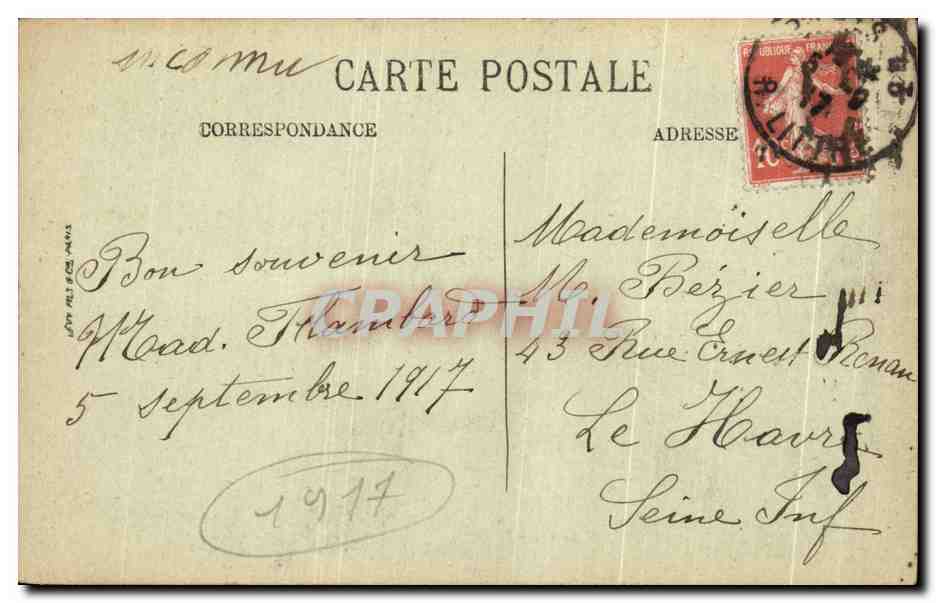 inconnu
CARTE POSTALE
CORRESPONDANCE
ADRESSE
REPUBLIQUE FRANC
10
R. LITTRE
Bon souvenir
Mad. Flambard
5 septembre 1917
1917
Mademoiselle
M. Bézier
43 Rue Ernest Renan
Le Havre
Seine Inf
CPAPHIL